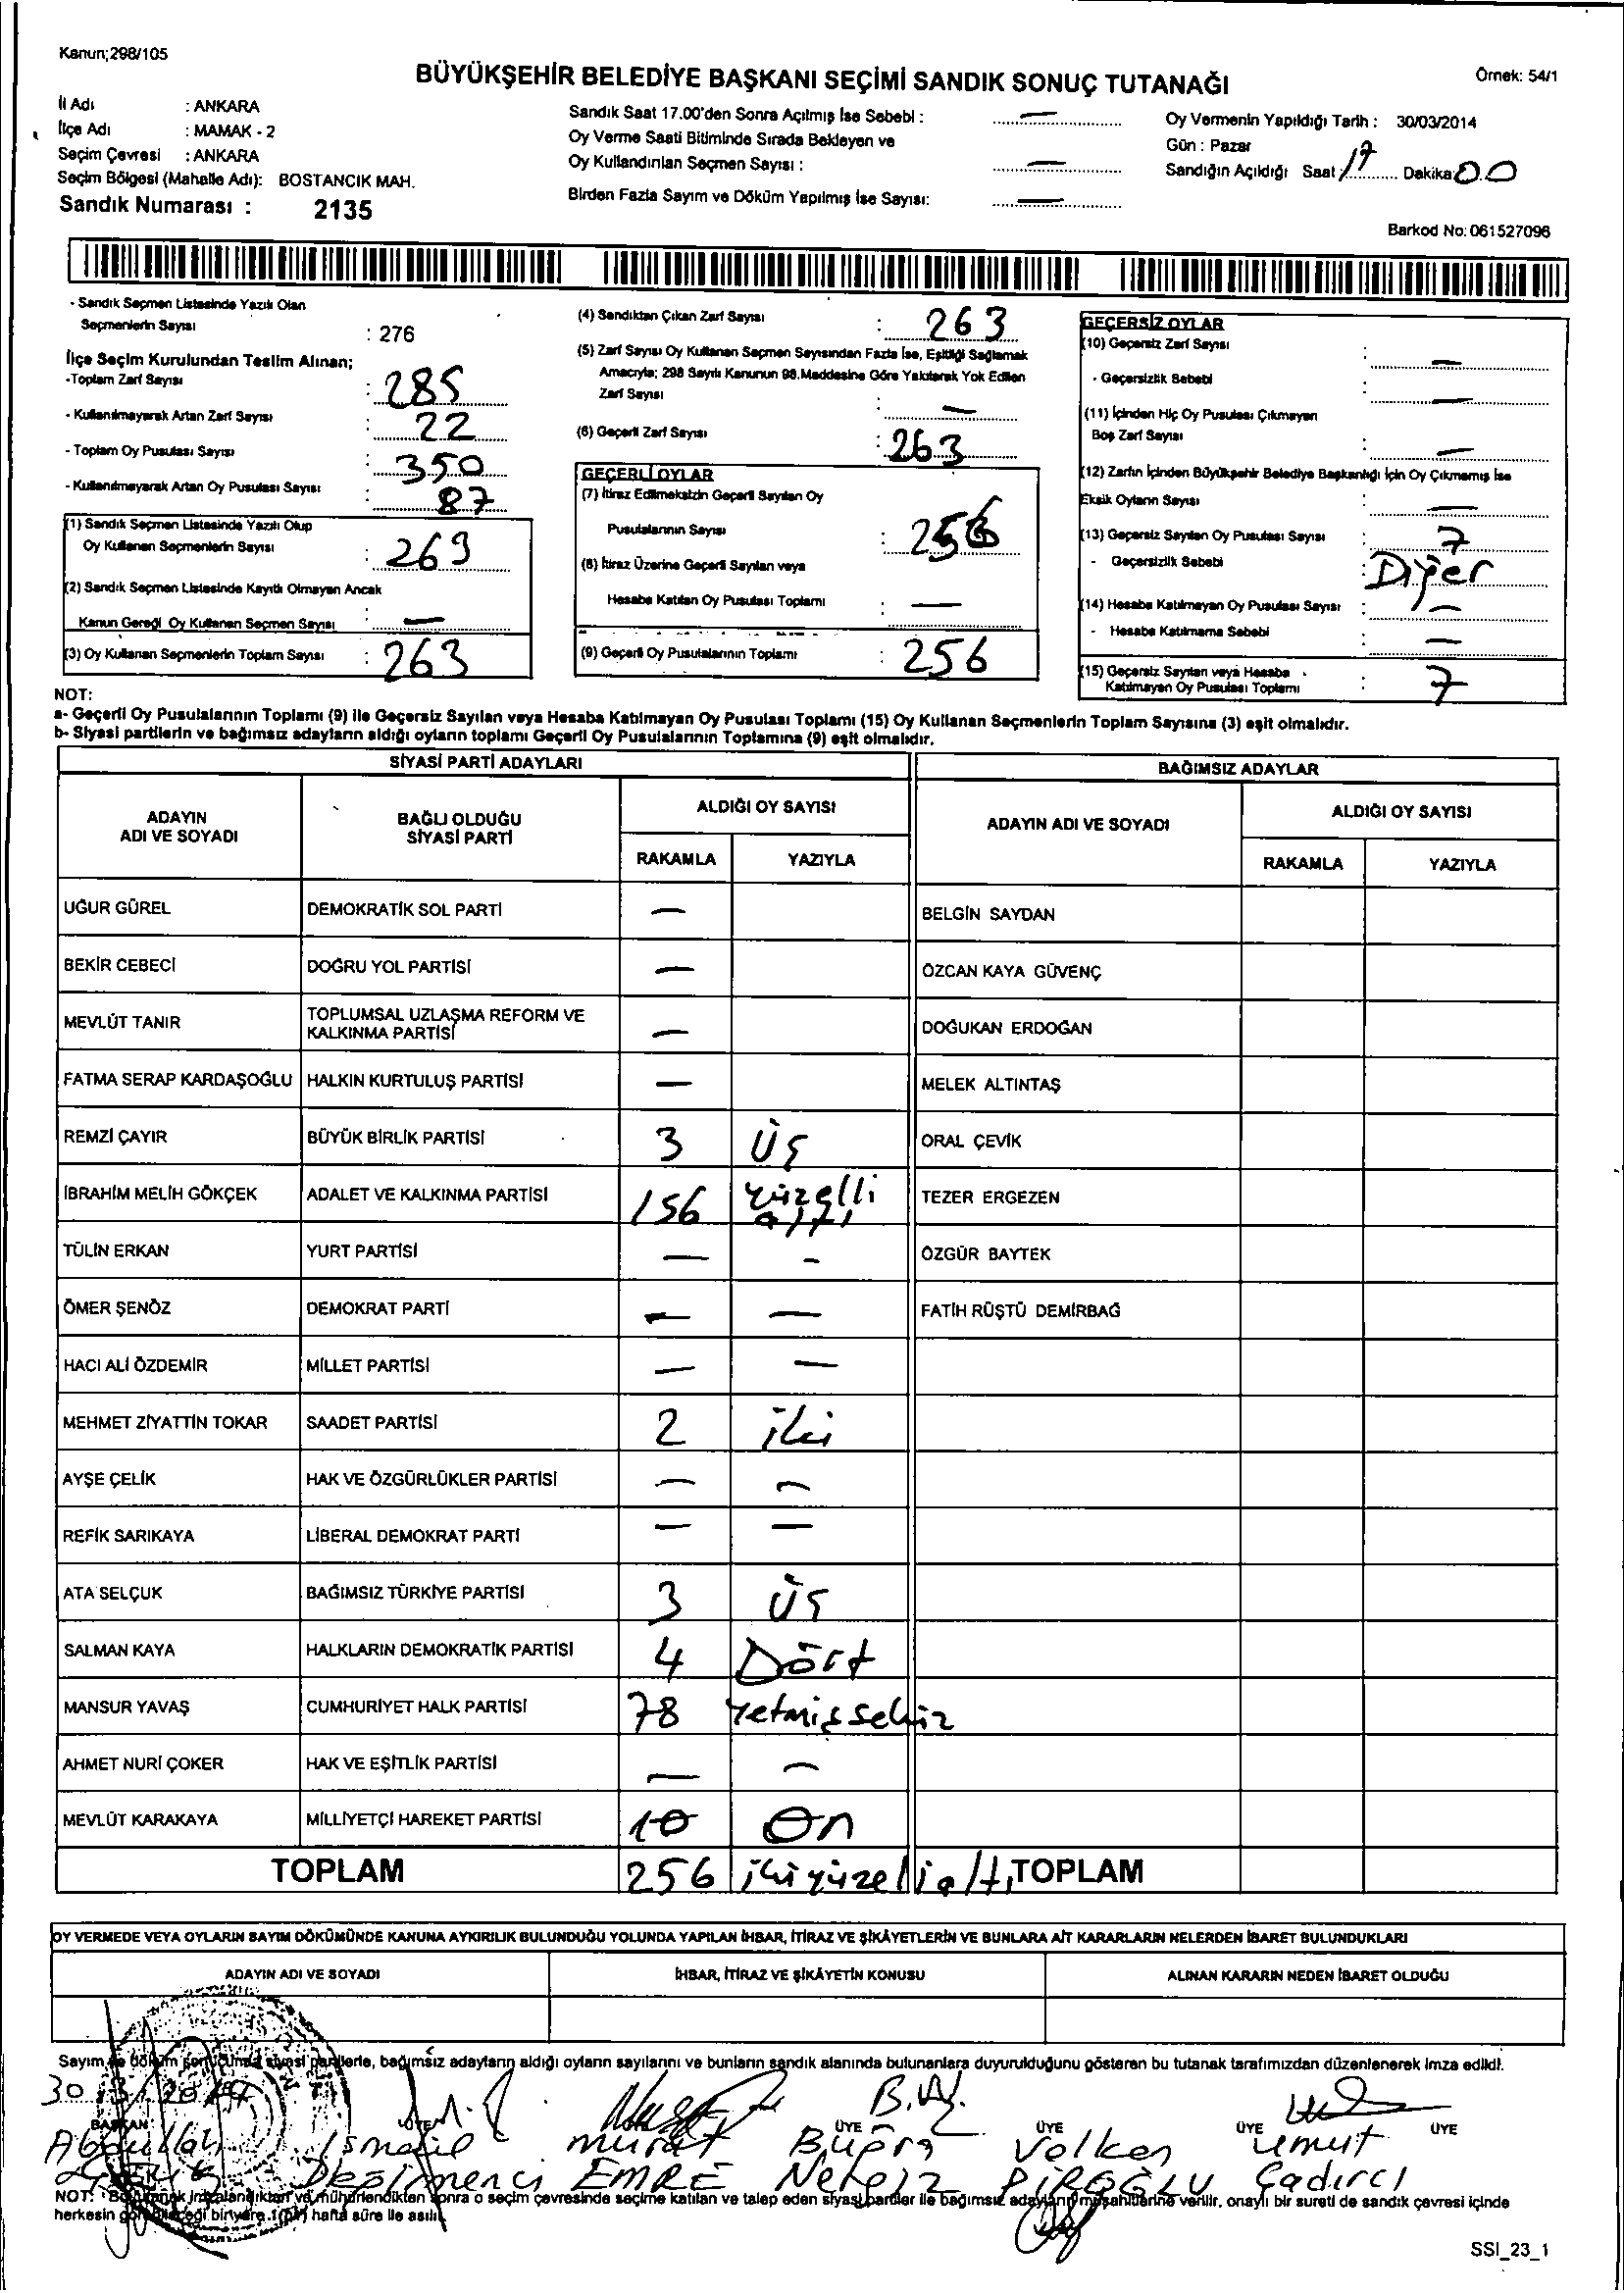 Kanun;298/105
BÜYÜKŞEHİR BELEDİYE BAŞKANI SEÇİMİ SANDIK SONUÇ TUTANAĞI
Örnek: 54/1
İl Adı : ANKARA
İlçe Adı : MAMAK - 2
Seçim Çevresi : ANKARA
Seçim Bölgesi (Mahalle Adı): BOSTANCIK MAH.
Sandık Numarası : 2135
Sandık Saat 17.00'den Sonra Açılmış İse Sebebi : —
Oy Verme Saati Bitiminde Sırada Bekleyen ve
Oy Kullandırılan Seçmen Sayısı : —
Birden Fazla Sayım ve Döküm Yapılmış İse Sayısı: —
Oy Vermenin Yapıldığı Tarih : 30/03/2014
Gün : Pazar
Sandığın Açıldığı Saat 17 Dakika 00
Barkod No: 061527096
- Sandık Seçmen Listesinde Yazılı Olan
Seçmenlerin Sayısı : 276
İlçe Seçim Kurulundan Teslim Alınan;
-Toplam Zarf Sayısı : 285
- Kullanılmayarak Artan Zarf Sayısı : 22
- Toplam Oy Pusulası Sayısı : 350
- Kullanılmayarak Artan Oy Pusulası Sayısı : 87
(1) Sandık Seçmen Listesinde Yazılı Olup
Oy Kullanan Seçmenlerin Sayısı : 263
(2) Sandık Seçmen Listesinde Kayıtlı Olmayan Ancak
Kanun Gereği Oy Kullanan Seçmen Sayısı : —
(3) Oy Kullanan Seçmenlerin Toplam Sayısı : 263
(4) Sandıktan Çıkan Zarf Sayısı : 263
(5) Zarf Sayısı Oy Kullanan Seçmen Sayısından Fazla İse, Eşitliği Sağlamak
Amacıyla; 298 Sayılı Kanunun 98.Maddesine Göre Yakılarak Yok Edilen
Zarf Sayısı : —
(6) Geçerli Zarf Sayısı : 263
GEÇERLİ OYLAR
(7) İtiraz Edilmeksizin Geçerli Sayılan Oy
Pusulalarının Sayısı : 256
(8) İtiraz Üzerine Geçerli Sayılan veya
Hesaba Katılan Oy Pusulası Toplamı : —
(9) Geçerli Oy Pusulalarının Toplamı : 256
GEÇERSİZ OYLAR
(10) Geçersiz Zarf Sayısı : —
- Geçersizlik Sebebi : —
(11) İçinden Hiç Oy Pusulası Çıkmayan
Boş Zarf Sayısı : —
(12) Zarfın İçinden Büyükşehir Belediye Başkanlığı İçin Oy Çıkmamış İse
Eksik Oyların Sayısı : —
(13) Geçersiz Sayılan Oy Pusulası Sayısı : 7
- Geçersizlik Sebebi : Diğer
(14) Hesaba Katılmayan Oy Pusulası Sayısı : —
- Hesaba Katılmama Sebebi : —
(15) Geçersiz Sayılan veya Hesaba
Katılmayan Oy Pusulası Toplamı : 7
NOT:
a- Geçerli Oy Pusulalarının Toplamı (9) ile Geçersiz Sayılan veya Hesaba Katılmayan Oy Pusulası Toplamı (15) Oy Kullanan Seçmenlerin Toplam Sayısına (3) eşit olmalıdır.
b- Siyasi partilerin ve bağımsız adayların aldığı oyların toplamı Geçerli Oy Pusulalarının Toplamına (9) eşit olmalıdır.
SİYASİ PARTİ ADAYLARI
BAĞIMSIZ ADAYLAR
ADAYIN ADI VE SOYADI
BAĞLI OLDUĞU SİYASİ PARTİ
ALDIĞI OY SAYISI
RAKAMLA YAZIYLA
ADAYIN ADI VE SOYADI
ALDIĞI OY SAYISI
RAKAMLA YAZIYLA
UĞUR GÜREL DEMOKRATİK SOL PARTİ — BELGİN SAYDAN
BEKİR CEBECİ DOĞRU YOL PARTİSİ — ÖZCAN KAYA GÜVENÇ
MEVLÜT TANIR TOPLUMSAL UZLAŞMA REFORM VE KALKINMA PARTİSİ — DOĞUKAN ERDOĞAN
FATMA SERAP KARDAŞOĞLU HALKIN KURTULUŞ PARTİSİ — MELEK ALTINTAŞ
REMZİ ÇAYIR BÜYÜK BİRLİK PARTİSİ 3 Üç ORAL ÇEVİK
İBRAHİM MELİH GÖKÇEK ADALET VE KALKINMA PARTİSİ 156 Yüzelli altı TEZER ERGEZEN
TÜLİN ERKAN YURT PARTİSİ — - ÖZGÜR BAYTEK
ÖMER ŞENÖZ DEMOKRAT PARTİ — — FATİH RÜŞTÜ DEMİRBAĞ
HACI ALİ ÖZDEMİR MİLLET PARTİSİ — —
MEHMET ZİYATTİN TOKAR SAADET PARTİSİ 2 iki
AYŞE ÇELİK HAK VE ÖZGÜRLÜKLER PARTİSİ — —
REFİK SARIKAYA LİBERAL DEMOKRAT PARTİ — —
ATA SELÇUK BAĞIMSIZ TÜRKİYE PARTİSİ 3 Üç
SALMAN KAYA HALKLARIN DEMOKRATİK PARTİSİ 4 Dört
MANSUR YAVAŞ CUMHURİYET HALK PARTİSİ 78 Yetmişsekiz
AHMET NURİ ÇOKER HAK VE EŞİTLİK PARTİSİ — —
MEVLÜT KARAKAYA MİLLİYETÇİ HAREKET PARTİSİ 10 On
TOPLAM 256 ikiyüzellialtı TOPLAM
OY VERMEDE VEYA OYLARIN SAYIM DÖKÜMÜNDE KANUNA AYKIRILIK BULUNDUĞU YOLUNDA YAPILAN İHBAR, İTİRAZ VE ŞİKÂYETLERİN VE BUNLARA AİT KARARLARIN NELERDEN İBARET BULUNDUKLARI
ADAYIN ADI VE SOYADI İHBAR, İTİRAZ VE ŞİKÂYETİN KONUSU ALINAN KARARIN NEDEN İBARET OLDUĞU
Sayım ve döküm sonucunda siyasi partilerle, bağımsız adayların aldığı oyların sayılarını ve bunların sandık alanında bulunanlara duyurulduğunu gösteren bu tutanak tarafımızdan düzenlenerek imza edildi.
30 3 2014
BAŞKAN ÜYE ÜYE ÜYE ÜYE ÜYE
Abdullah İsmail Murat Buğra Volkan Umut
Değirmenci EMRE PİROĞLU Çadırcı
NOT: Bu tutanak imzalandıktan ve mühürlendikten sonra o seçim çevresinde seçime katılan ve talep eden siyasi partiler ile bağımsız adayların müşahitlerine verilir, onaylı bir sureti de sandık çevresi içinde
herkesin görebileceği bir yere 1 (bir) hafta süre ile asılır.
SSI_23_1